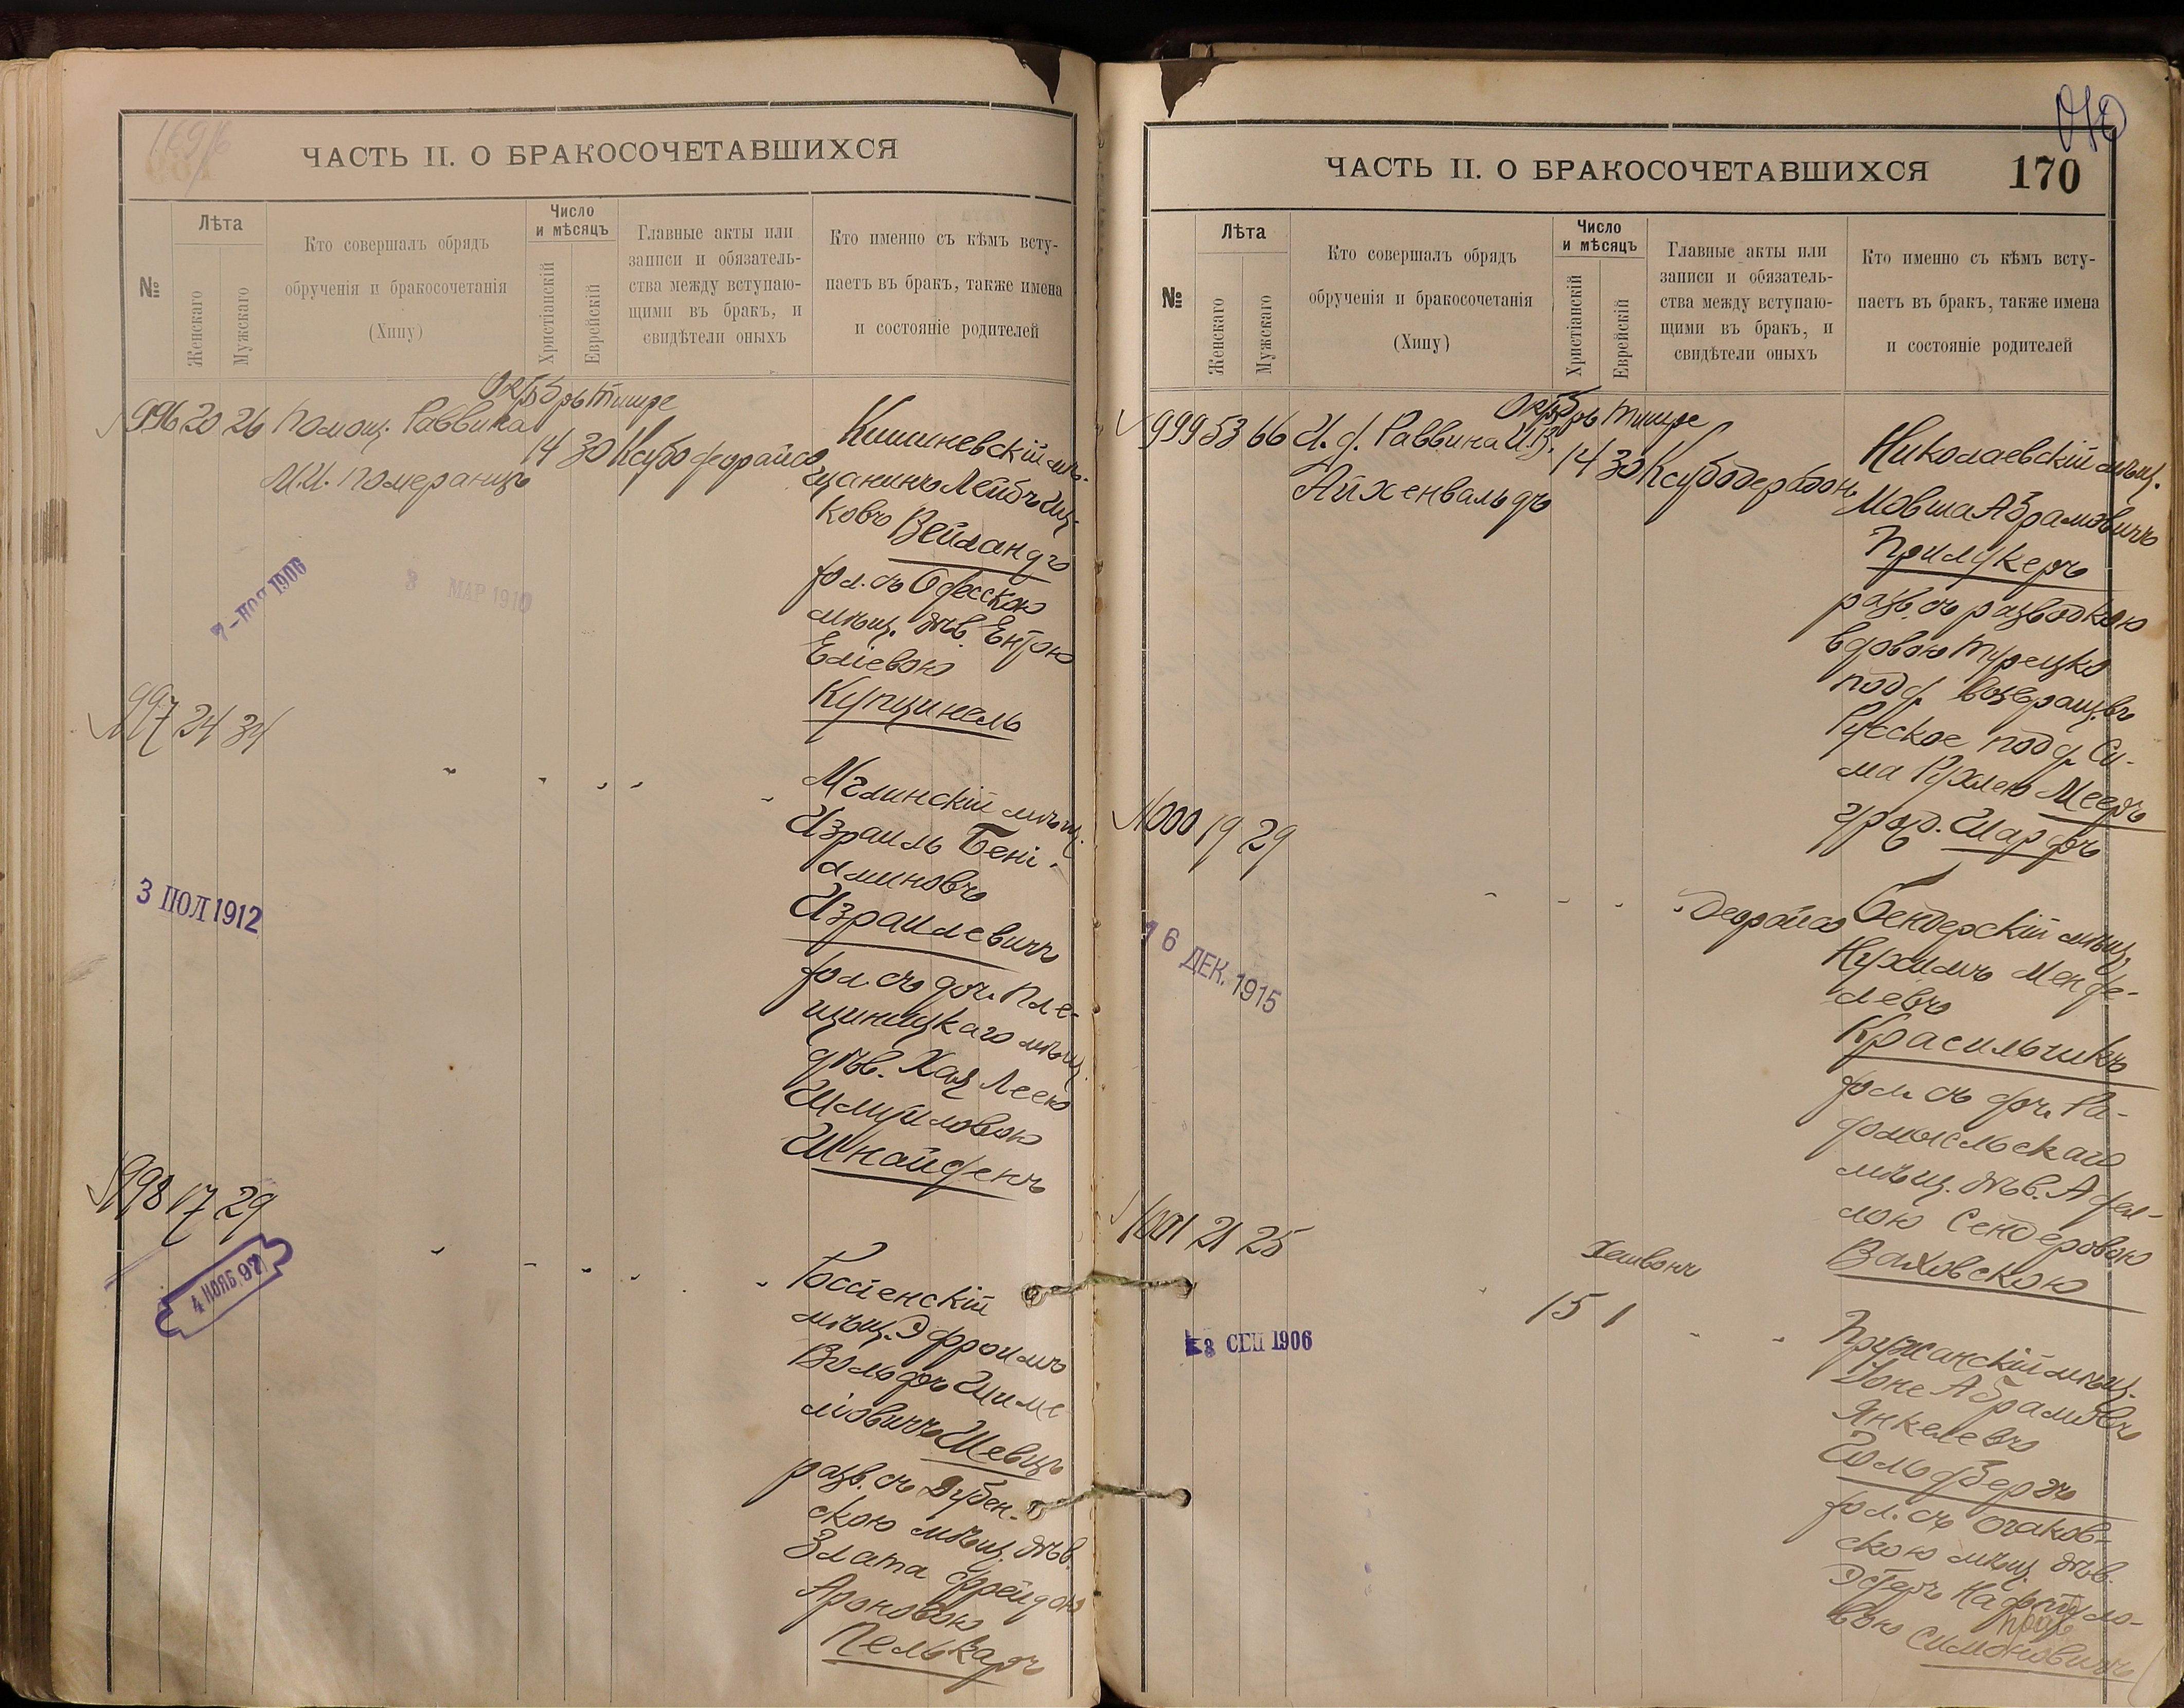 ЧАСТЬ II. О БРАКОСОЧЕТАВШИХСЯ
№
Лѣта
Женскаго
Мужскаго
Кто совершалъ обрядъ
обрученія и бракосочетанія
(Хипу)
Число
и мѣсяцъ
Христіанскій
Еврейскій
Главные акты или
записи и обязатель-
ства между вступаю-
щими въ бракъ, и
свидѣтели оныхъ
Кто именно съ кѣмъ всту-
паетъ въ бракъ, также имена
и состояніе родителей
996 20 26 Помощ. Раввина
И.И. Померанцъ
Октябрь Тишре
14 30
Кишиневскій мѣ-
щанинъ Лейбъ Иц-
ковъ Вейландъ
хол. съ Одесскою
мѣщ. дѣв. Ентою
Еліевою
Купцинель
7 - НОЯ 1906
3 МАР 1910
997 24 34
Мглинскій мѣщ.
Израиль Бені-
аминовъ
Израилевичъ
хол. съ доч. Пле-
щиницкаго мѣщ.
дѣв. Хая Леею
Шмуиловою
Шнайденъ
3 ІЮЛ 1912
998 17 29
4 НОЯБ. 97
Россіенскій
мѣщ. Эфроимъ
Вольфъ Шиме
ліовичъ Шевцъ
разв. съ Дубен-
скою мѣщ. дѣв.
Злата Фрейдою
Ароновою
Пелькаръ
ЧАСТЬ II. О БРАКОСОЧЕТАВШИХСЯ
170
№
Лѣта
Женскаго
Мужскаго
Кто совершалъ обрядъ
обрученія и бракосочетанія
(Хипу)
Число
и мѣсяцъ
Христіанскій
Еврейскій
Главные акты или
записи и обязатель-
ства между вступаю-
щими въ бракъ, и
свидѣтели оныхъ
Кто именно съ кѣмъ всту-
паетъ въ бракъ, также имена
и состояніе родителей
999 53 66 И. д. Раввина И.В.
Айхенвальдъ
Октябрь Тишре
14 30
Николаевскій мѣщ.
Мовша Абрамовичъ
Прилукеръ
разв. съ разводкою
вдовою Турецко
подд. возвращ. въ
Русское подд. Си-
ма Рухлею Мееръ
урожд. Шарфъ
1000 19 29
Деорайсо
Бендерскій мѣщ.
Нухимъ Менде-
левъ
Красильчикъ
хол. съ доч. Ра-
домысльскаго
мѣщ. дѣв. Адел-
лою Сендеровою
Ваховскою
16 ДЕК. 1915
1001 21 25
Хешвонъ
15 1
Пружанскій мѣщ.
Іоне Абрамовъ
Янкелевъ
Гольдбергъ
хол. съ Очаков-
скою мѣщ. дѣв.
Эстеръ Нафтуло-
вою Симоновичъ
СЕП 1906